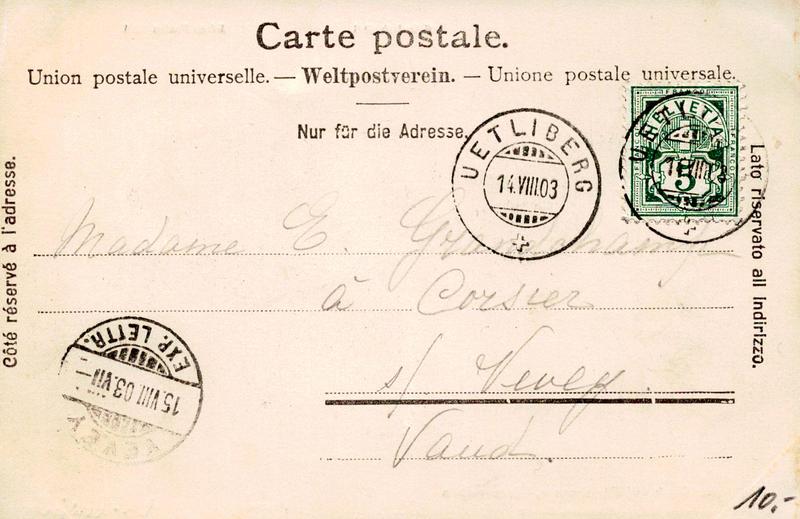 Carte postale.
Union postale universelle. — Weltpostverein. — Unione postale universale.
Nur für die Adresse.
UETLIBERG
14.VIII.03
HELVETIA
FRANCO
5
UETLIBERG
14.VIII.03
Côté réservé à l'adresse.
Lato riservato all Indirizzo.
Madame E. Grandchamp
à Corsier
s/ Vevey.
Vaud.
VEVEY
15.VIII.03.VII—
EXP. LETTR.
10.-